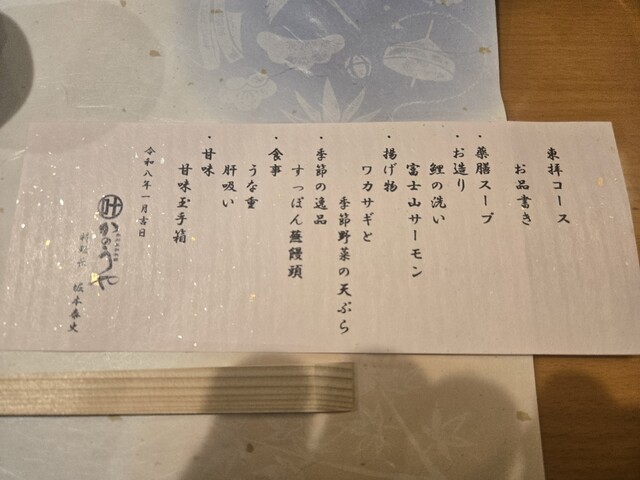 東拝コース
お品書き
・薬膳スープ
・お造り
鯉の洗い
富士山サーモン
・揚げ物
ワカサギと
季節野菜の天ぷら
・季節の逸品
すっぽん蕪饅頭
・食事
うな重
肝吸い
・甘味
甘味玉手箱
令和八年一月吉日
叶
かのうや
料理長